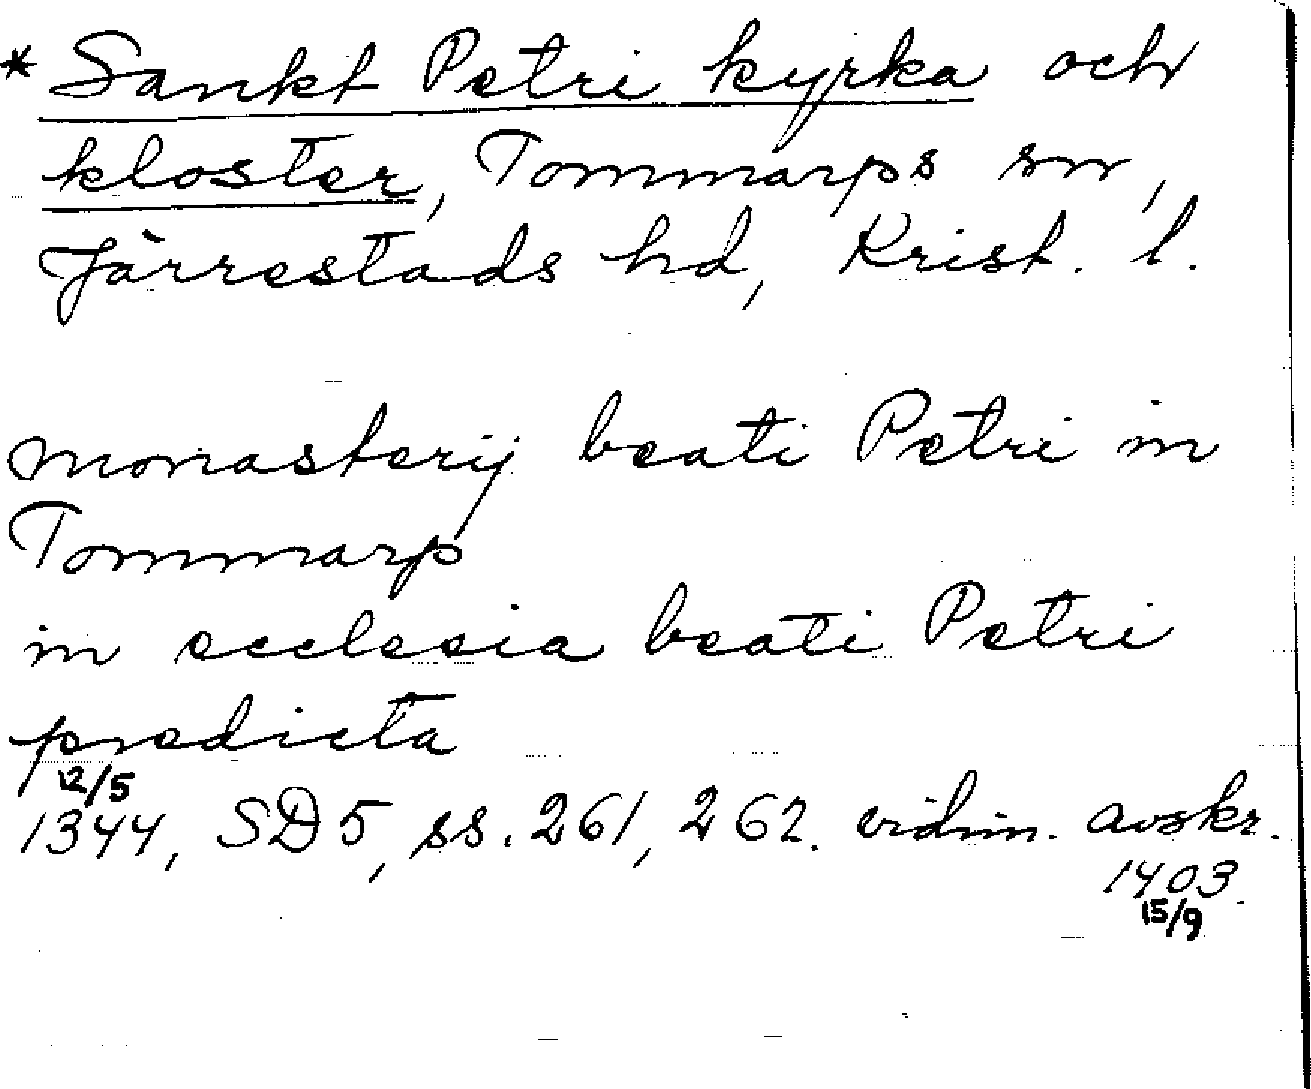 * Sankt Petri kyrka och
kloster, Tommarps sn,
Järrestads hd, Krist. l.
monasterij beati Petri in
Tommarp
in ecclesia beati Petri
predicta
12/5
1344, SD 5, ss. 261, 262. vidim. avskr.
1403.
15/9